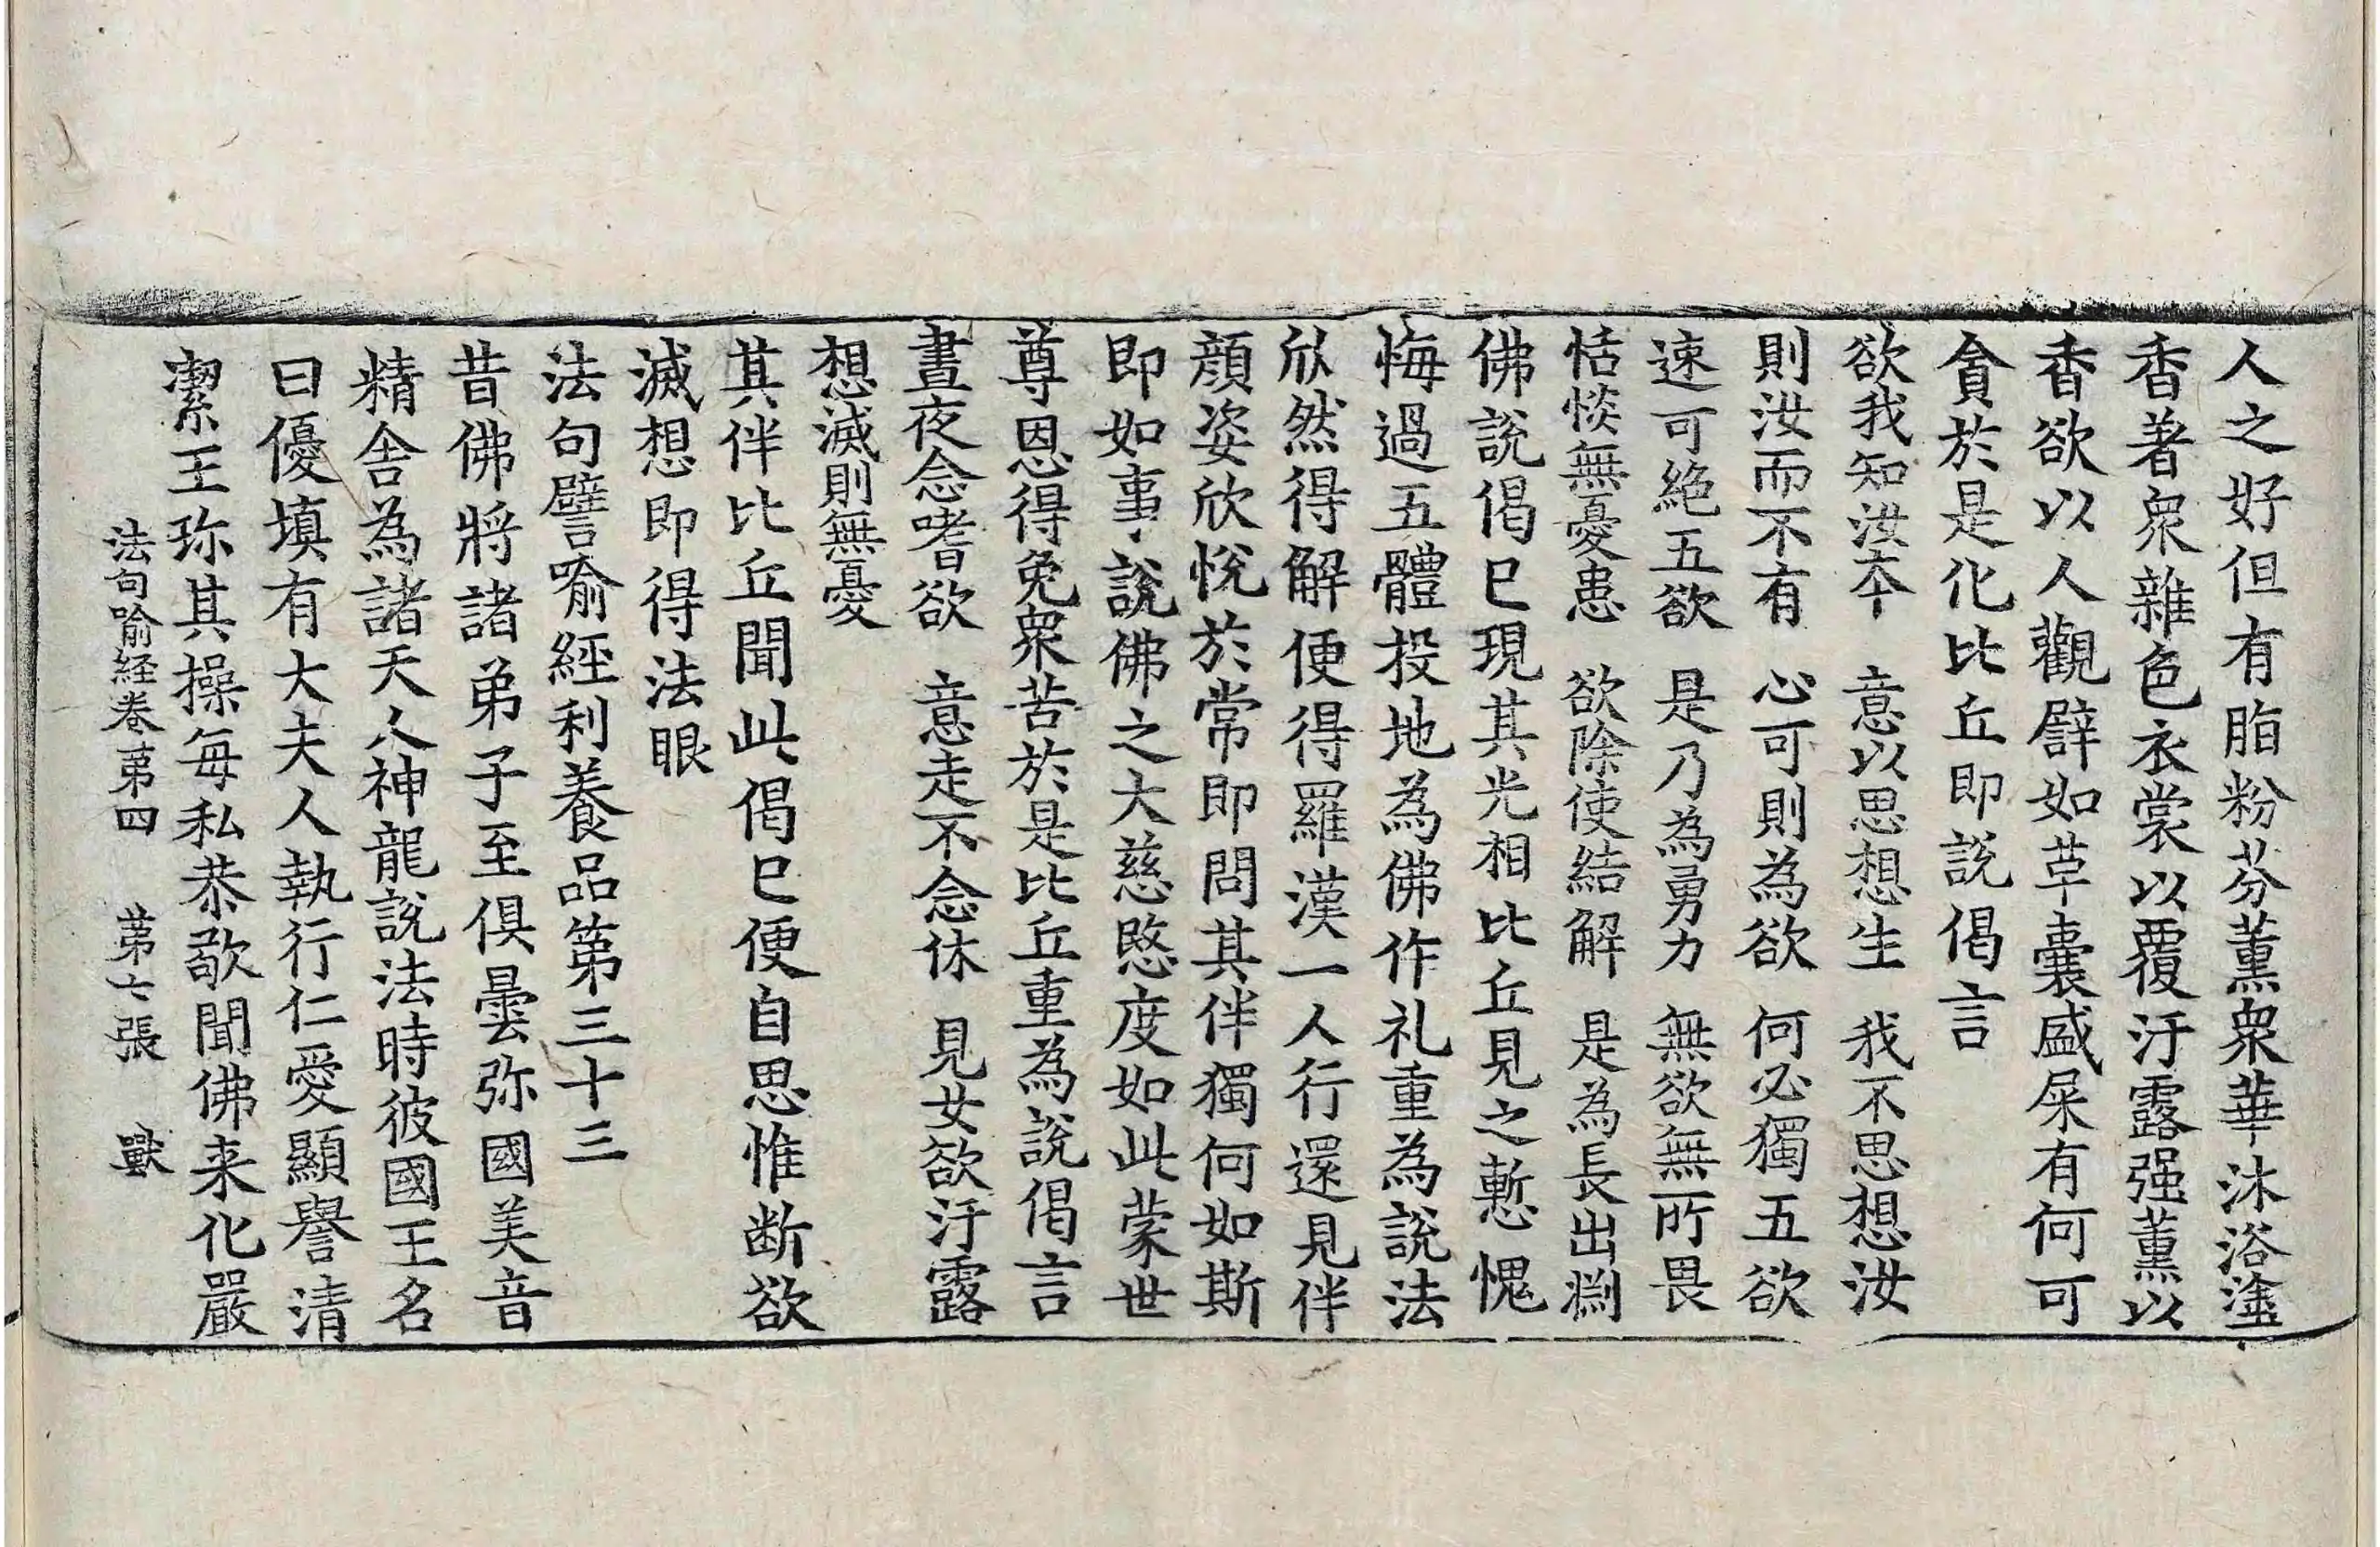 人之好但有脂粉芬薰衆華沐浴塗
香著衆雜色衣裳以覆汙露强薰以
香欲以人觀譬如草囊盛屎有何可
貪於是化比丘即說偈言
欲我知汝本　意以思想生　我不思想汝
則汝而不有　心可則為欲　何必獨五欲
速可絶五欲　是乃為勇力　無欲無所畏
恬惔無憂患　欲除使結解　是為長出淵
佛說偈已現其光相比丘見之慙愧
悔過五體投地為佛作礼重為說法
欣然得解便得羅漢一人行還見伴
顔姿欣悅於常即問其伴獨何如斯
即如事說佛之大慈愍度如此蒙世
尊恩得免衆苦於是比丘重為說偈言
晝夜念嗜欲　意走不念休　見女欲汙露
想滅則無憂
其伴比丘聞此偈已便自思惟断欲
滅想即得法眼
法句譬喻經利養品第三十三
昔佛將諸弟子至俱曇弥國美音
精舍為諸天人神龍說法時彼國王名
曰優填有大夫人執行仁愛顯譽清
潔王珎其操每私恭敬聞佛来化嚴
法句喻経卷第四　第七張　獸